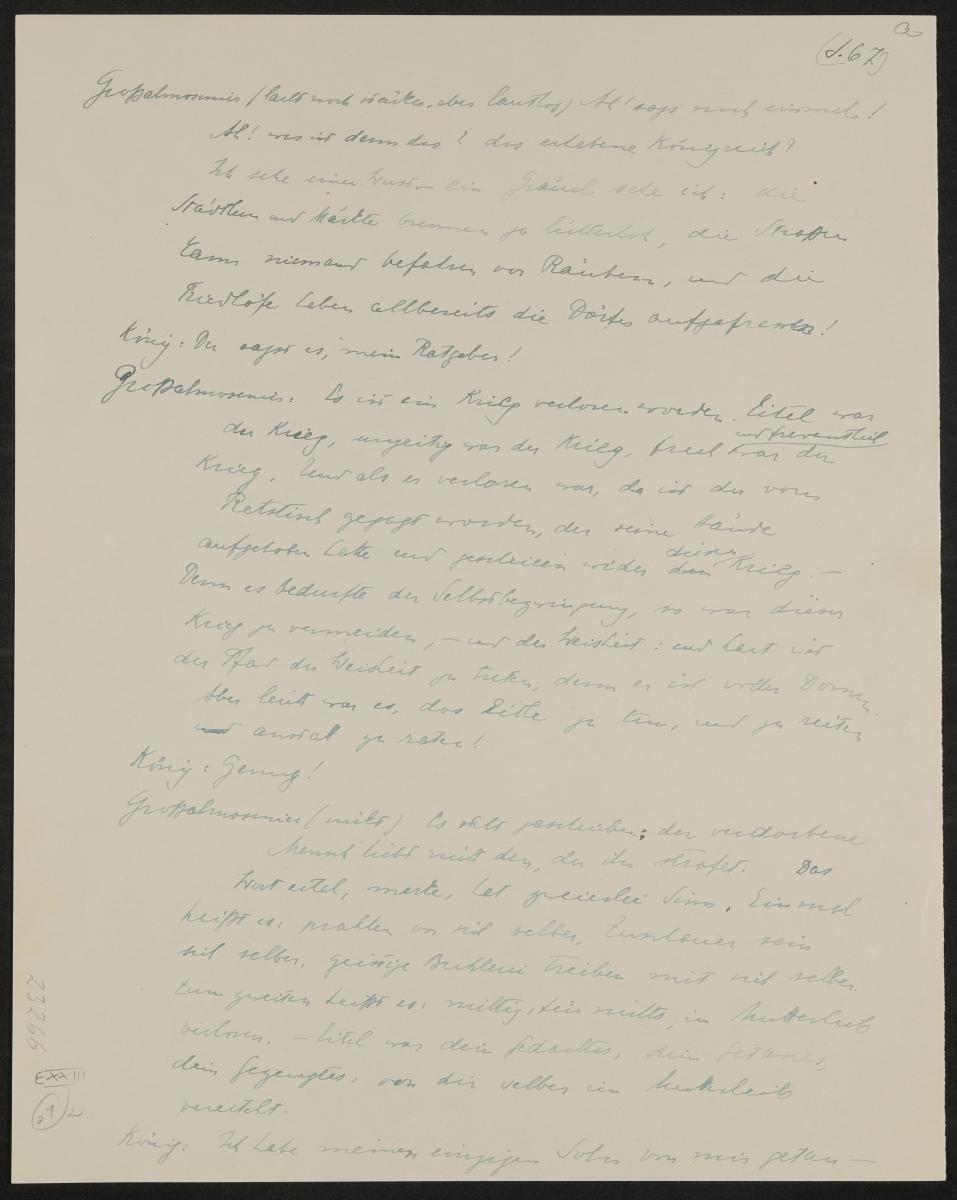 (S. 67.)
Großalmosenier (lacht noch stärker, aber lautlos) Ah! sags noch einmal!
Ah! was ist denn das? das erhabene Königreich?
Ich sehe einen Wust – ein Gräuel sehe ich: die
Städtlein und Märkte brennen ja lichterloh, die Straßen
kann niemand befahren vor Räubern, und die
Friedlöse haben allbereits die Dörfer aufgefressen!
König: Du sagst es, mein Ratgeber!
Großalmosenier: Es ist ein Krieg verloren worden. Eitel war
der Krieg, unzeitig war der Krieg, frech und freventlich war der
Krieg. Und als er verloren war, da ist der vom
Ratstisch gejagt worden, der seine Hände
aufgehoben hatte und geschrieen wider den diesen Krieg. –
Denn es bedurfte der Selbstbezwingung, so war dieser
Krieg zu vermeiden, – und der Weisheit: und hart ist
der Pfad der Weisheit zu treten, denn er ist voller Dornen.
Aber leicht war es, das Eitle zu tun, und zu reiten
und anstatt zu raten!
König: Genug!
Großalmosenier (mild) Es steht geschrieben: der verdorbene
Mensch liebt nicht den, der ihn strafet. Das
Wort eitel, merke, hat zweierlei Sinn. Einmal
heißt es: prahlen vor sich selber, Zuschauer sein
sich selber, geistige Buhlerei treiben mit sich selber.
Zum zweiten heißt es: nichtig, für nichts, im Mutterleib
verloren. – Eitel war dein Gedachtes, dein Getanes,
dein Gezeugtes, von dir selber im Mutterleib
vereitelt.
König: Ich habe meinen einzigen Sohn von mir getan –
23266
EXXIII
2